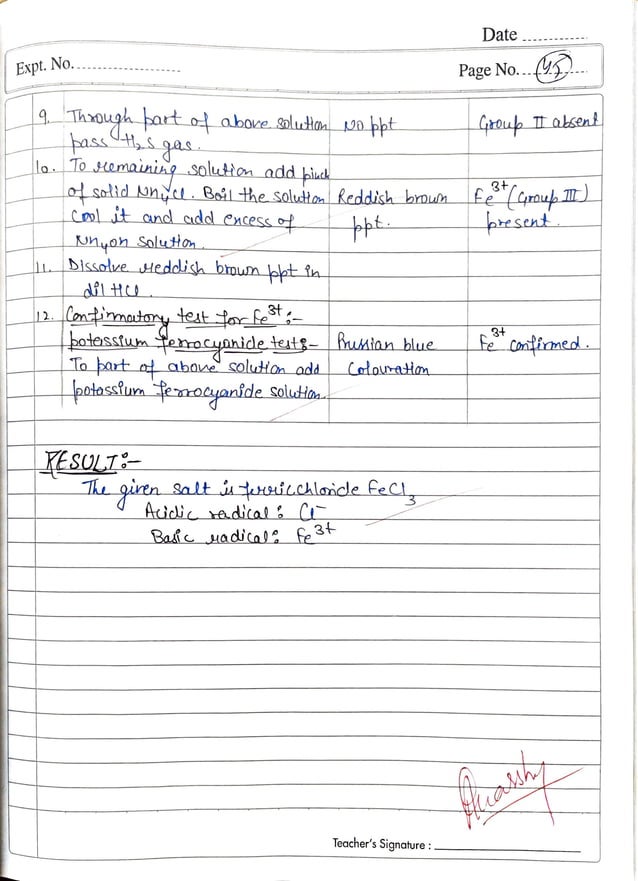 Date
Expt. No.
Page No. 45
9. Through part of above solution No ppt Group II absent
pass H2S gas.
10. To remaining solution add pinch
of solid NH4Cl. Boil the solution Reddish brown Fe3+ (Group III)
Cool it and add excess of ppt. present.
NH4OH solution.
11. Dissolve reddish brown ppt in
dil HCl.
12. Confirmatory test for Fe3+:-
potassium ferrocyanide test:- Prussian blue Fe3+ confirmed.
To part of above solution add Colouration
potassium ferrocyanide solution.
RESULT:-
The given salt is ferricchloride FeCl3
Acidic radical: Cl-
Basic radical: Fe3+
Teacher's Signature :